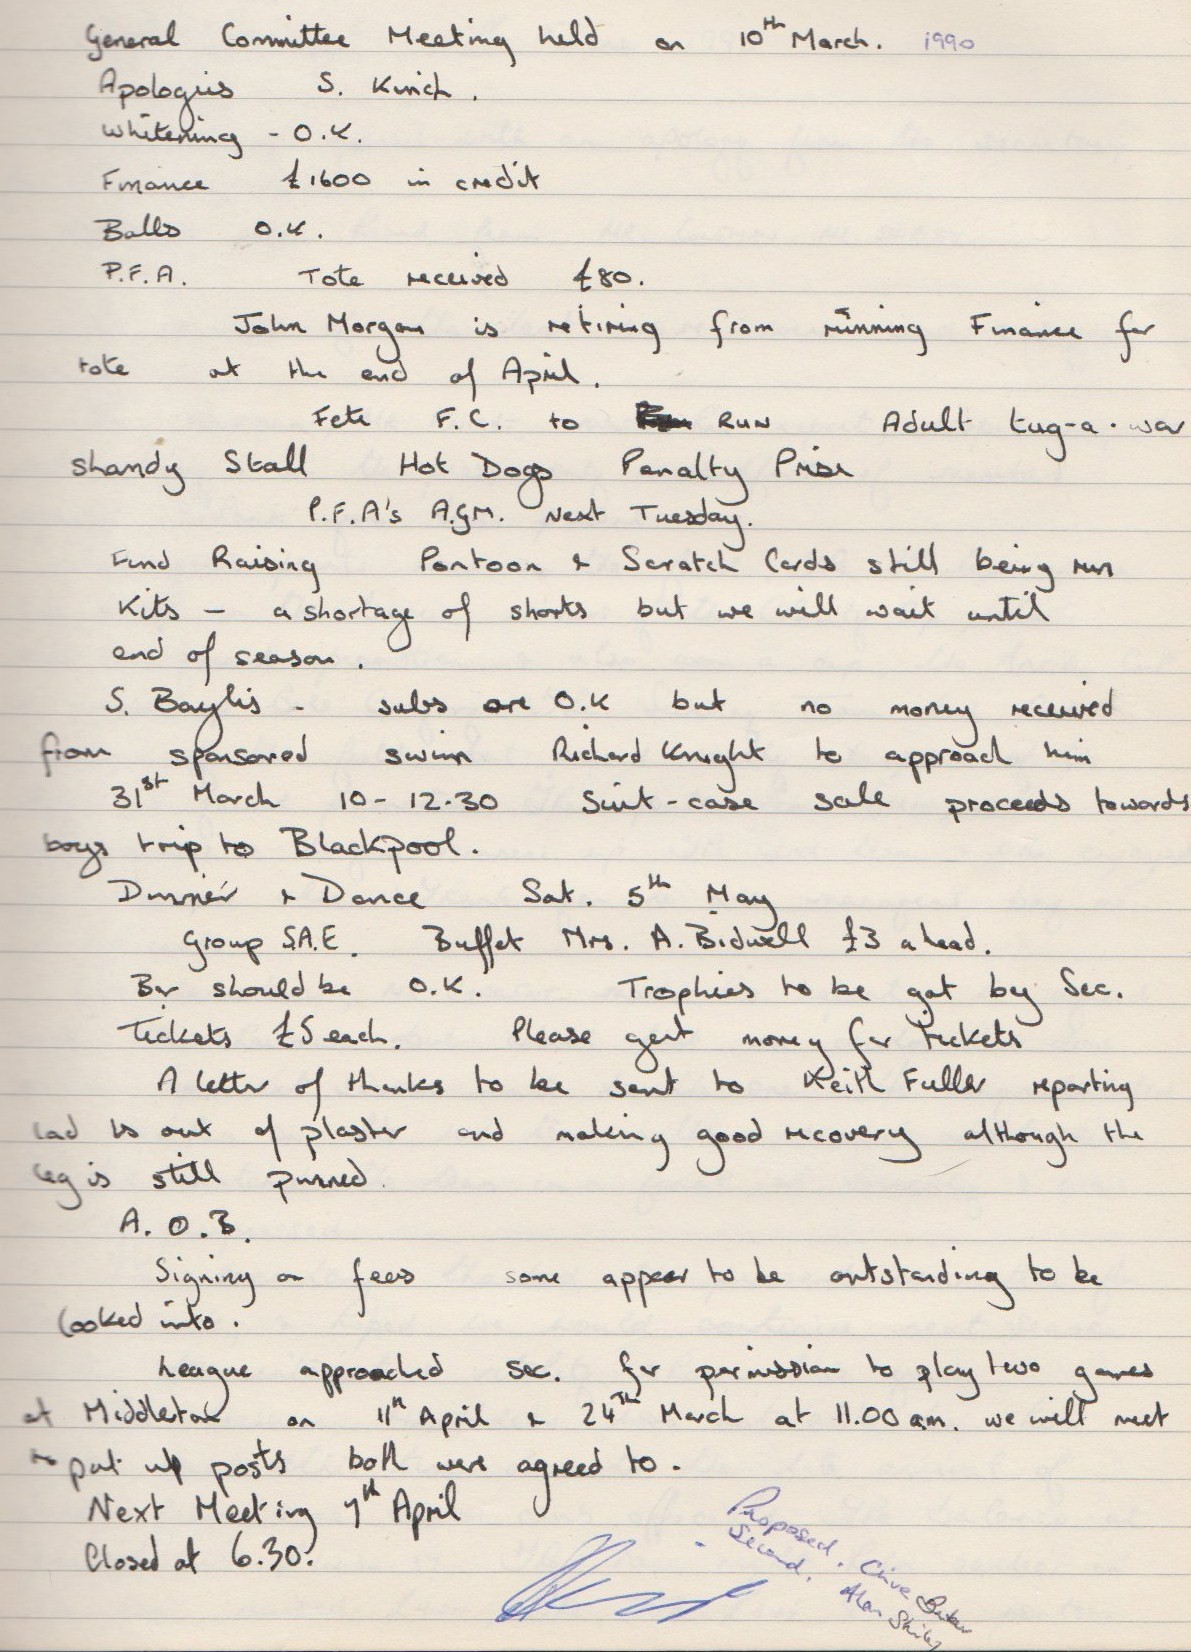 General Committee Meeting held on 10th March. 1990
Apologies S. Kinch.
Whitening - O.K.
Finance £1600 in credit
Balls O.K.
P.F.A. Tote received £80.
John Morgan is retiring from running Finance for
tote at the end of April.
Fete F.C. to RUN Adult tug-a-war
shandy Stall Hot Dogs Penalty Prise
P.F.A's A.G.M. Next Tuesday.
Fund Raising Pontoon & Scratch Cards still being run
Kits - a shortage of shorts but we will wait until
end of season.
S. Baylis - subs are O.K but no money received
from sponsored swim Richard Knight to approach him
31st March 10-12.30 Suit-case sale proceeds towards
boys trip to Blackpool.
Dinner & Dance Sat. 5th May
Group S.A.E. Buffet Mrs. A. Bidwell £3 a head.
Bar should be O.K. Trophies to be got by Sec.
Tickets £5 each. Please get money for tickets
A letter of thanks to be sent to Keith Fuller reporting
lad is out of plaster and making good recovery although the
leg is still pinned.
A.O.B.
Signing on fees some appear to be outstanding to be
looked into.
League approached Sec. for permission to play two games
at Middleton on 11th April & 24th March at 11.00 am. we will meet
to put up posts both were agreed to.
Next Meeting 7th April
Closed at 6.30.
Proposed. Clive
Second. Alan